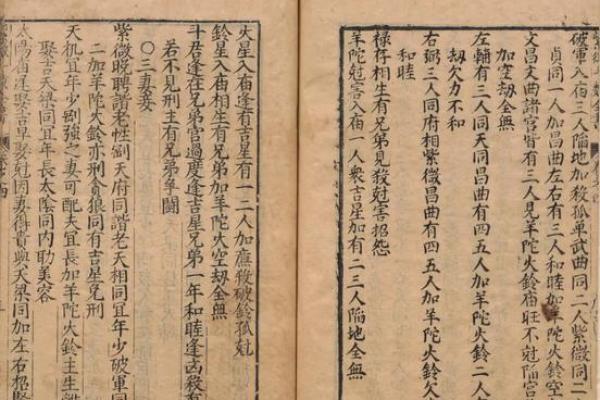 破軍入庙三人陥地加殺孤单武曲同二人紫微同二
貞同一人加昌曲左右有三人和睦加羊陀火鈴空
文昌文曲諸宫皆有三人見羊陀火鈴庙旺不尅陥宫
加空劫全無
左輔有三人同天同昌曲有四五人加羊陀火鈴二人
劫欠力不和
右弼三人同府相紫微昌曲有四五人加羊陀火鈴欠
和睦
禄存相生有兄弟見殺尅害招怨
羊陀尅害入庙一人衆吉星加有二三人陥地全無
火星入庙逢有吉星有一二人加廉殺破鈴孤尅
鈴星入庙相生有兄弟加羊陀火空劫全無
斗君逢在兄弟宫過度逢吉星兄弟一年和睦逢凶殺有
若不見刑主有兄弟争鬪
〇三妻妾
紫微晚聘諧老性剛天府同諧老天相同宜年少破軍同
二加羊陀火鈴亦刑貪狼同有吉星免刑
天机宜年少剛强之妻可配夫宜長加羊陀火鈴主生離
娶吉天梁同宜年長太陰同内助美容
太陽庙逢娶吉早娶尅因妻得貴與天梁同加左右招賢